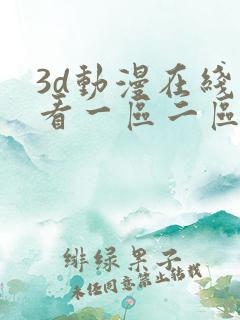 3d動漫在綫
看一區二區
緋绿果子
未经同意禁止转载